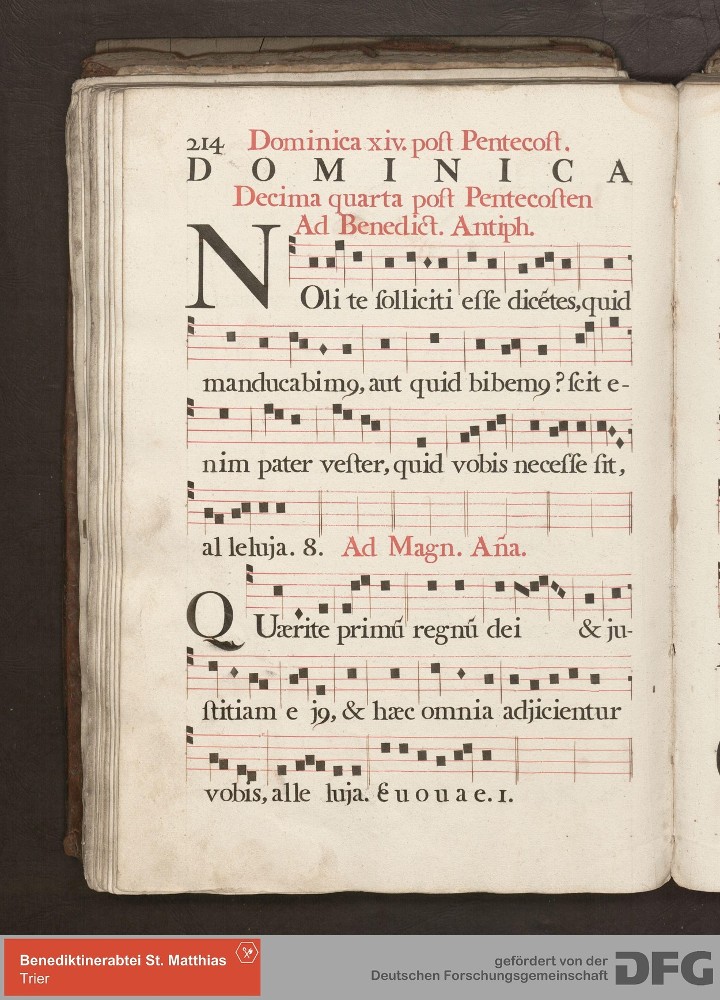 214 Dominica xiv. poſt Pentecoſt.
DOMINICA
Decima quarta poſt Pentecoſten
Ad Benedict. Antiph.
NOli te ſolliciti eſſe dicẽtes, quid
manducabimꝰ, aut quid bibemꝰ? ſcit e-
nim pater veſter, quid vobis neceſſe ſit,
al leluja. 8. Ad Magn. Aña.
QUærite primũ regnũ dei & ju-
ſtitiam e jꝰ, & hæc omnia adjicientur
vobis, alle luja. E u o u a e. 1.
Benediktinerabtei St. Matthias
Trier
gefördert von der
Deutschen Forschungsgemeinschaft
DFG